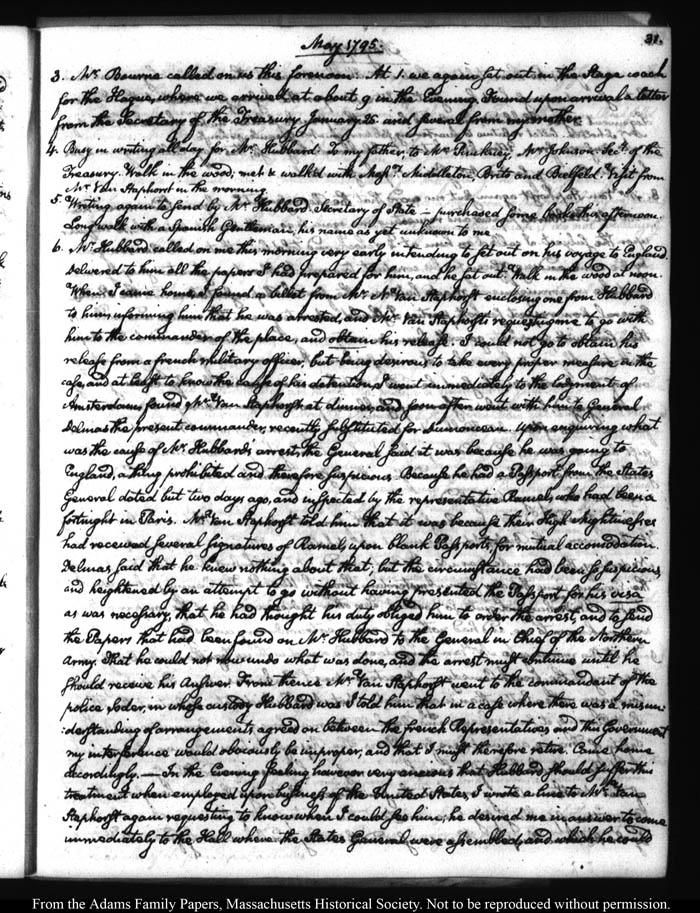 May 1795.
31.
3. Mr. Bourne called on us this forenoon. At 1. we again set out in the Stage coach
for the Hague, where we arrived at about 9 in the Evening. Found upon arrival a letter
from the Secretary of the Treasury January 25 and several from my mother.
4. Busy in writing all day for Mr. Hubbard. To my father, to Mr. Pinckney, Mr. Johnson. Secy. of the
Treasury. Walk in the wood; met & walk'd with Messrs. Middleton, Brito and Bielfeld. Visit from
Mr. Van Staphorst in the morning.
5. Writing again to send by Mr. Hubbard. Secretary of State — purchased some books this afternoon.
Long walk with a Spanish Gentleman, his name as yet unknown to me.
6. Mr. Hubbard called on me this morning very early intending to set out on his voyage to England.
Delivered to him all the papers I had prepared for him, and he set out. Walk in the wood at noon.
When I came home, I found a billet from Mr. N. Van Staphorst enclosing one from Hubbard
to him, informing him that he was arrested, and Mr. Van Staphorst's requesting me to go with
him to the commander of the place, and obtain his release. I could not go to obtain his
release from a french military officer, but being desirous to take every proper measure in the
case, and at least to know the cause of his detention, I went immediately to the lodgment of
Amsterdam; found Mr. Van Staphorst at dinner, and soon after went with him to General
Delmas the present commander, recently substituted for Dumonceau. Upon enquiring what
was the cause of Mr. Hubbard's arrest, the General said it was because he was going to
England, a thing prohibited and therefore suspicious. Because he had a Passport from the States
General dated but two days ago, and inspected by the representative Ramel, who had been a
fortnight in Paris. Mr. Van Staphorst told him that it was because their High Mightinesses
had received several signatures of Ramel, upon blank Passports, for mutual accomodation.
Delmas said that he knew nothing about that, but the circumstance had been so suspicious,
and heightened by an attempt to go without having presented the Passport for his visa
as was necessary, that he had thought his duty obliged him to order the arrest, and to send
the Papers that had been found on Mr. Hubbard to the General in Chief of the Northern
Army. That he could not now undo what was done, and the arrest must continue until he
should receive his Answer. From thence Mr. Van Staphorst went to the commandant of the
police in whose custody Hubbard was. I told him that in a case where there was a misun-
:derstanding of arrangements agreed on between the french Representatives and this Government
my interference would obviously be improper, and that I must therefore retire. Came home
accordingly. — In the Evening feeling however very anxious that Hubbard should suffer this
treatment when employed upon business of the United States, I wrote a line to Mr. Van
Staphorst again requesting to know when I could see him; he desired me in answer to come
immediately to the Hall where the States General were assembled, and which he could
From the Adams Family Papers, Massachusetts Historical Society. Not to be reproduced without permission.